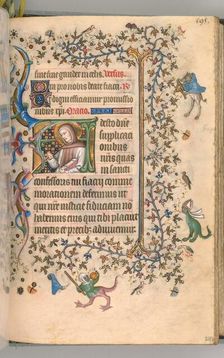 sine fine gaudet in celis. Versus.
Ora pro nobis beate fiacri. R
digni efficiamur promissio
nibus xpi. Oratio.
esto dne
supplicati
onibus
nris quas
in sancti
confessoris tui fiacrii comme
moratione deferimus ut
qui nre iusticie fiduciam no
habemus eius qui tibi placuit
meritis et precibz adiuuemur.